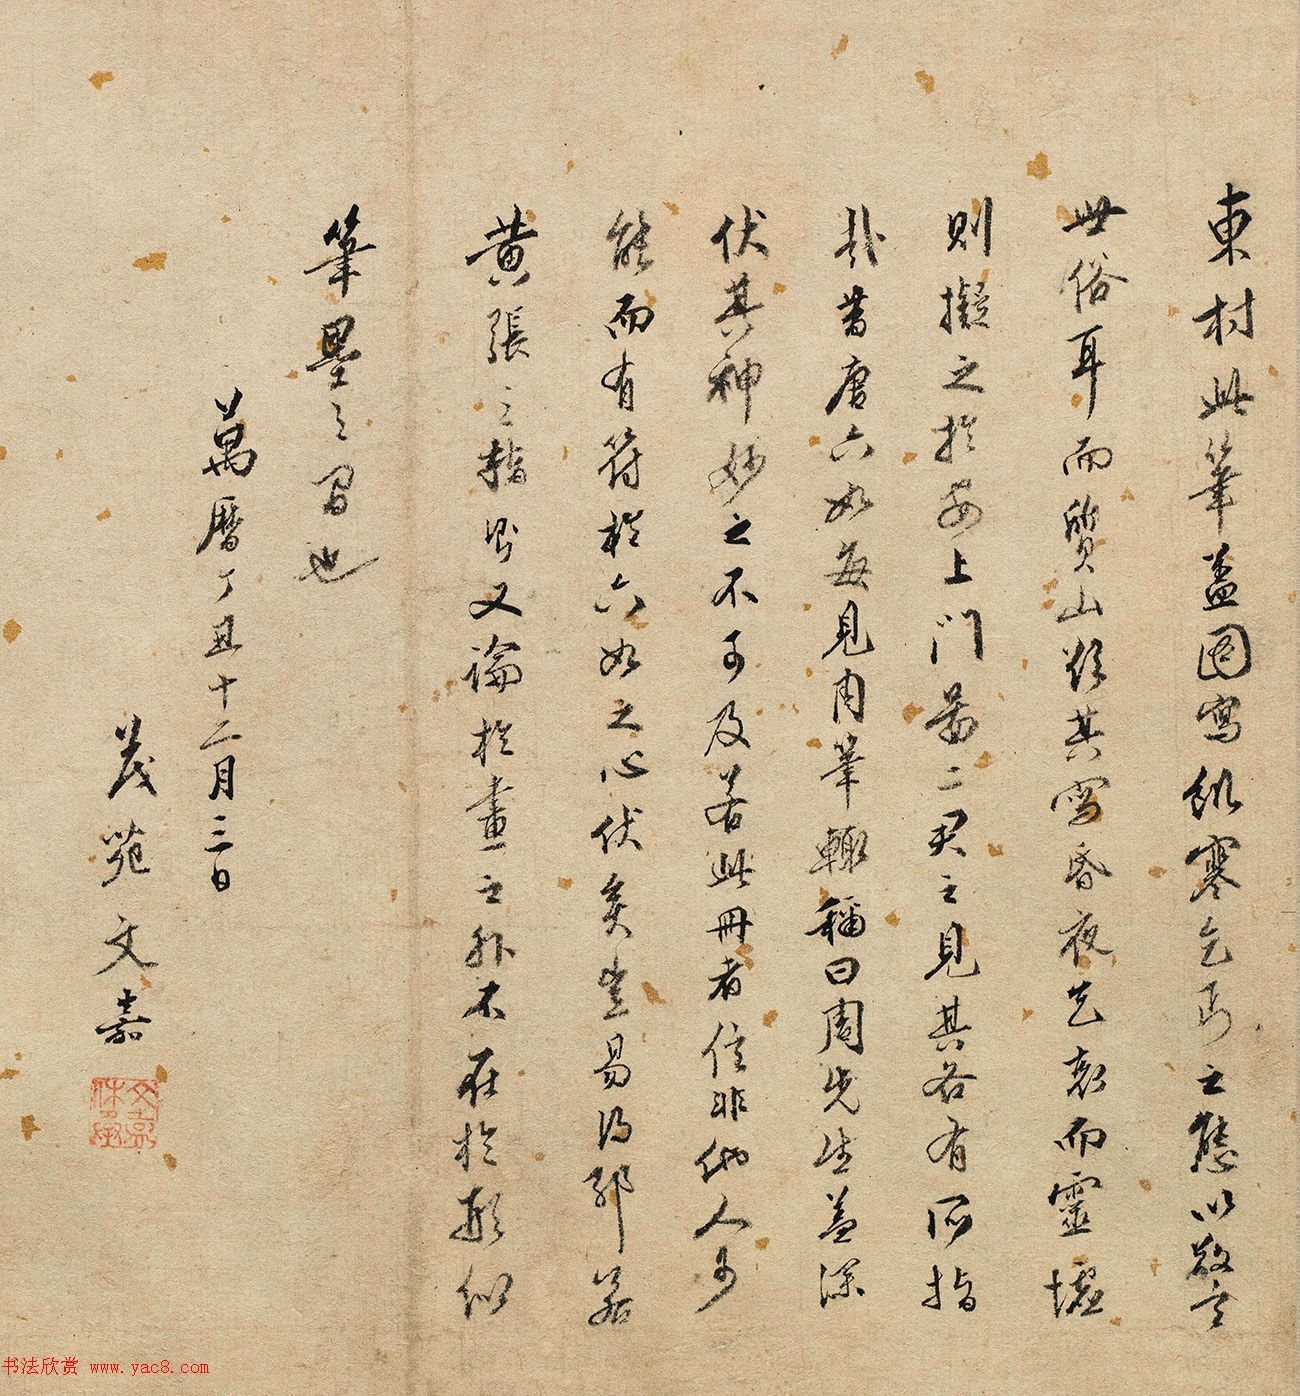 東村此筆蓋圖寫飢寒乞丐之態以警
世俗耳而質山欵其寫昏夜乞哀而靈墟
則擬之於安上門圖二君之見其各有所指
哉昔唐六如每見周筆輒稱曰周先生蓋深
伏其神妙之不可及若此冊者信非他人可
能而有符於六如之心伏矣豈易得耶若
黃張之指則又論於畫之外不在於形似
筆墨之間也
萬曆丁丑十二月三日
茂苑文嘉
文嘉休承
书法欣赏 www.yac8.com